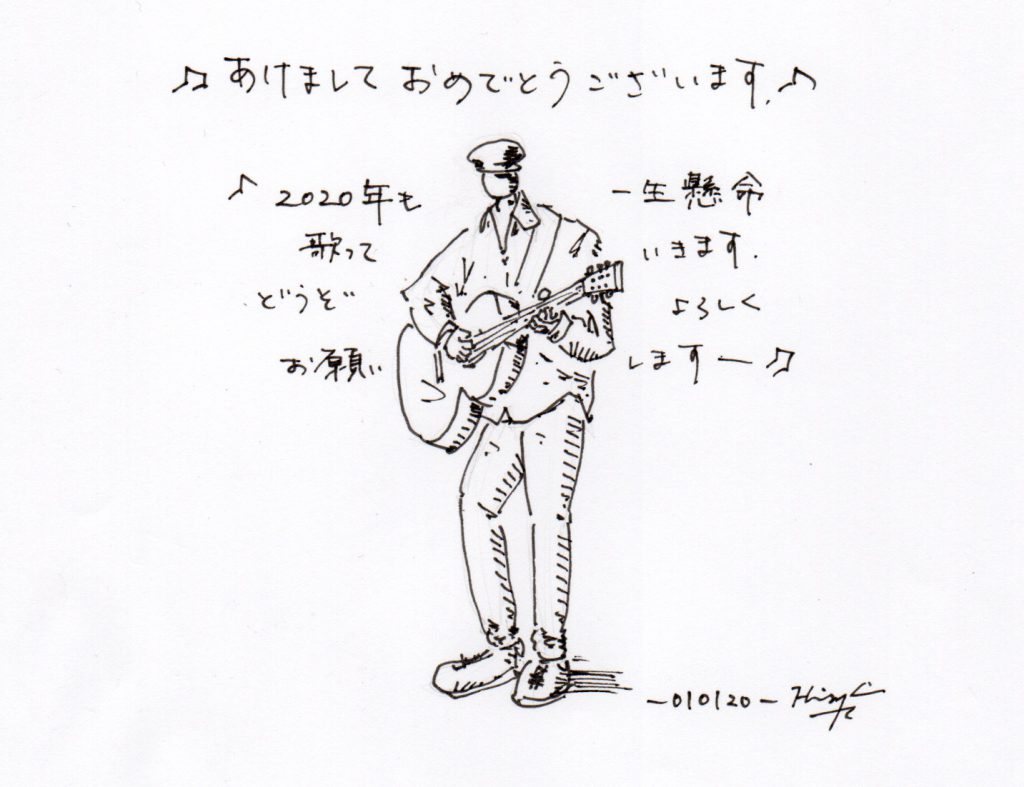 ♫ あけまして おめでとうございます.♪
♪ 2020年も 一生懸命
歌って いきます.
どうぞ よろしく
お願い しますー♫
-010120-